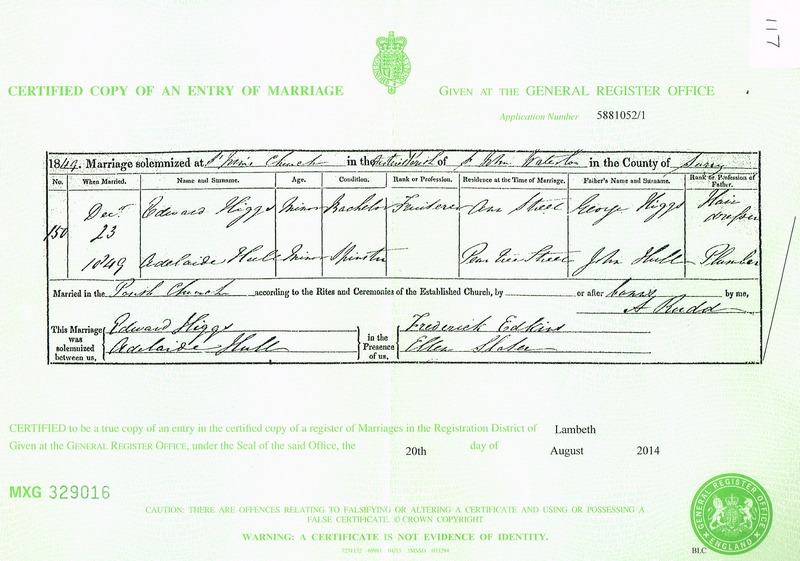 117
CERTIFIED COPY OF AN ENTRY OF MARRIAGE GIVEN AT THE GENERAL REGISTER OFFICE
Application Number 5881052/1
1849. Marriage solemnized at St John's Church in the District Parish of St John Waterloo in the County of Surry
No. When Married. Name and Surname. Age. Condition. Rank or Profession. Residence at the Time of Marriage. Father's Name and Surname. Rank or Profession of Father.
150 Decr 23 1849 Edward Higgs Minor Bachelor Fruiterer Ann Street George Higgs Hair dresser
Adelaide Hull Minor Spinster Pear Tree Street John Hull Plumber
Married in the Parish Church according to the Rites and Ceremonies of the Established Church, by or after banns by me,
A Rudd
This Marriage was solemnized between us, Edward Higgs Adelaide Hull in the Presence of us, Frederick Edkins Ellen Slater
CERTIFIED to be a true copy of an entry in the certified copy of a register of Marriages in the Registration District of Lambeth
Given at the GENERAL REGISTER OFFICE, under the Seal of the said Office, the 20th day of August 2014
MXG 329016
CAUTION: THERE ARE OFFENCES RELATING TO FALSIFYING OR ALTERING A CERTIFICATE AND USING OR POSSESSING A
FALSE CERTIFICATE. © CROWN COPYRIGHT
WARNING: A CERTIFICATE IS NOT EVIDENCE OF IDENTITY.
GENERAL REGISTER OFFICE ENGLAND
BLC